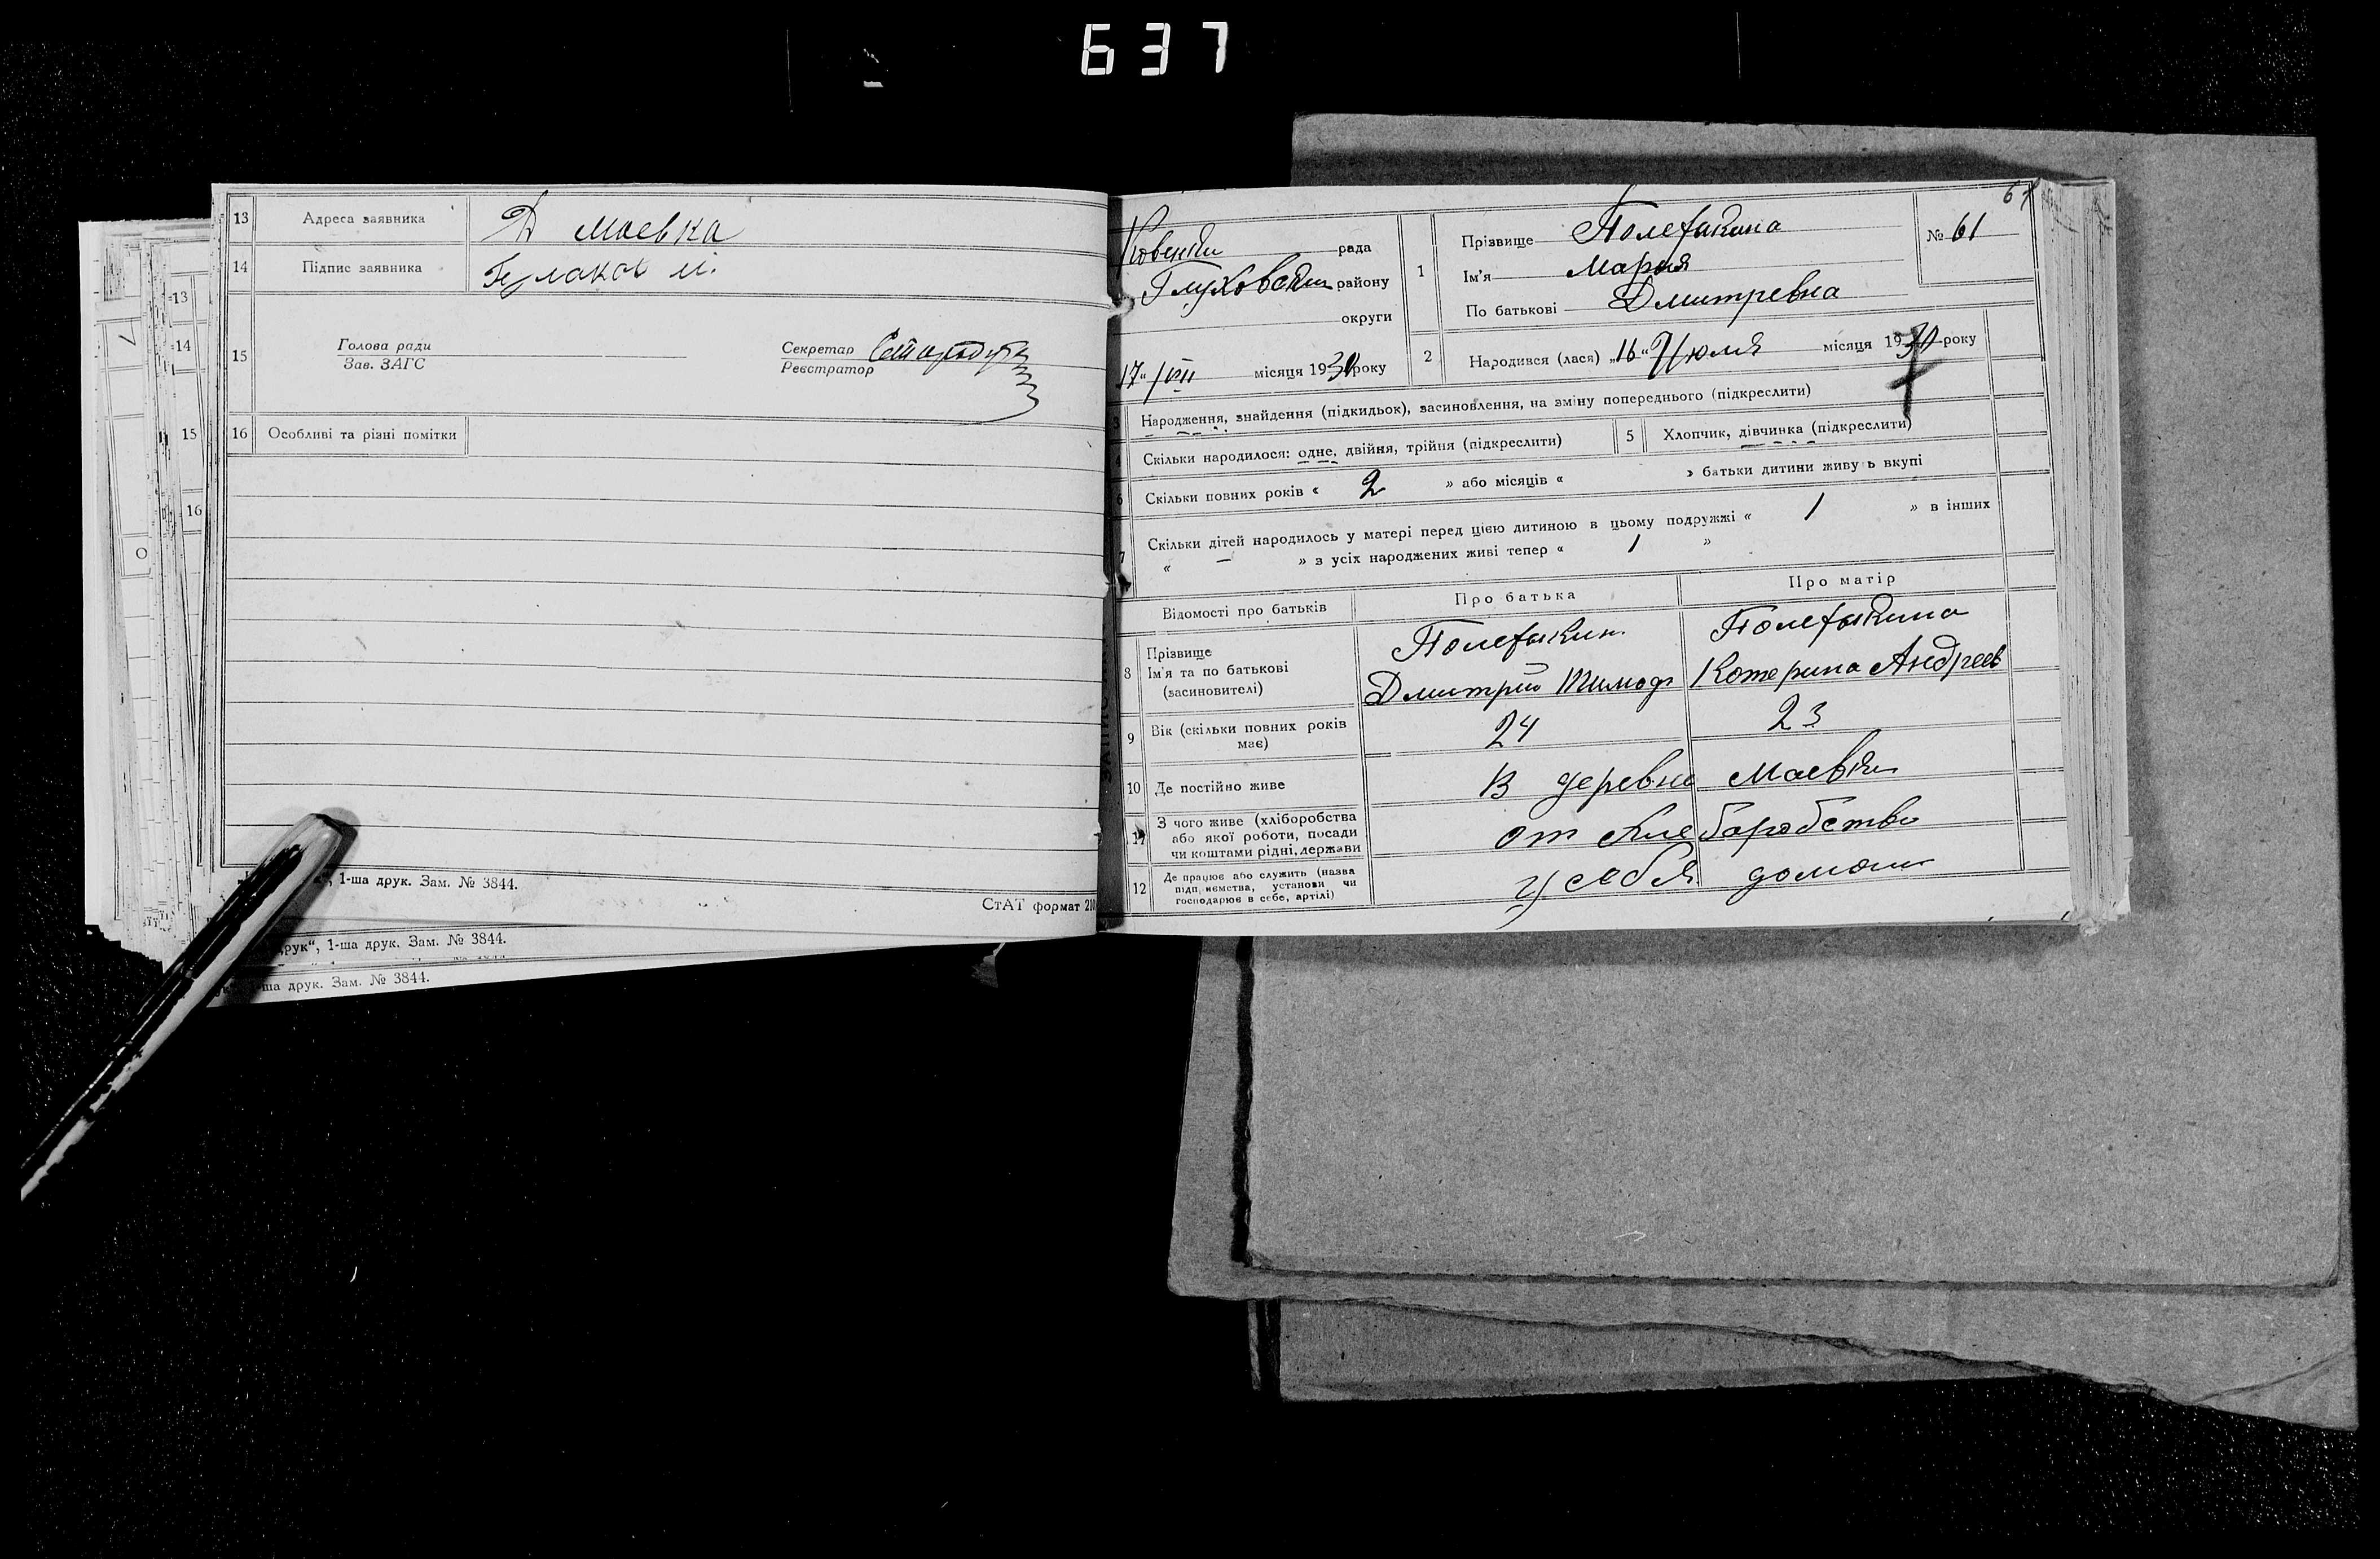 637
13 Адреса заявника Д маевка
14 Підпис заявника
15 Голова ради
Зав. ЗАГС
Секретар
Реєстратор
16 Особливі та різні помітки
1-ша друк. Зам. № 3844.
СтАТ формат 210
друк", 1-ша друк. Зам. № 3844.
1-ша друк. Зам. № 3844.
13
14
15
16
рада
Глуховский району
округи
17 " VII місяця 1930 року
1 Прізвище
Ім'я Мария
По батькові Дмитревна
№ 61
2 Народився (лася) „16" Июля місяця 1930 року
3 Народження, знайдення (підкидьок), засиновлення, на зміну попереднього (підкреслити)
4 Скільки народилося: одне, двійня, трійня (підкреслити)
5 Хлопчик, дівчинка (підкреслити)
6 Скільки повних років « 2 » або місяців « » батьки дитини живуть вкупі
7 Скільки дітей народилось у матері перед цією дитиною в цьому подружжі « 1 » в інших
« — » з усіх народжених живі тепер « 1 »
Відомості про батьків Про батька Про матір
8 Прізвище
Ім'я та по батькові
(засиновителі)
Дмитрий
Катерина Андреев
9 Вік (скільки повних років має) 24 23
10 Де постійно живе В деревне Маевки
11 З чого живе (хліборобства або якої роботи, посади чи коштами рідні, держави от хлебаробство
12 Де працює або служить (назва підприємства, установи чи господарює в себе, артілі) у себя дома